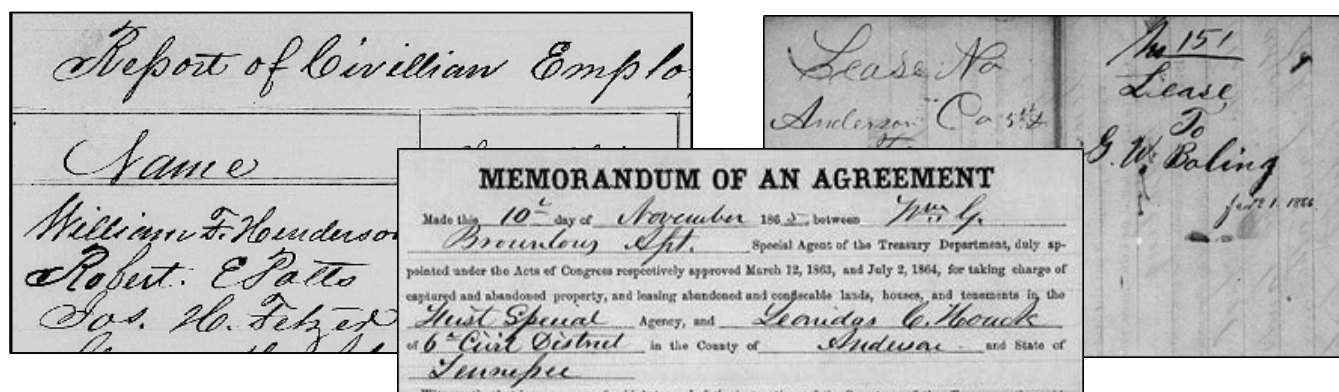 Report of Civillian Emplo
Name
William F. Henderson
Robert. E Potts
Jos. H. Fetzer
Lease No
Anderson Co
No 151
Lease
To
G. W. Boling
Jany 1. 1866
MEMORANDUM OF AN AGREEMENT
Made this 10" day of November 1865, between Wm. G.
Brownlow Agt. Special Agent of the Treasury Department, duly ap-
pointed under the Acts of Congress respectively approved March 12, 1863, and July 2, 1864, for taking charge of
captured and abandoned property, and leasing abandoned and confiscable lands, houses, and tenements in the
First Special Agency, and Leonidas C. Houck
of 6" Civil District in the County of Anderson and State of
Tennessee